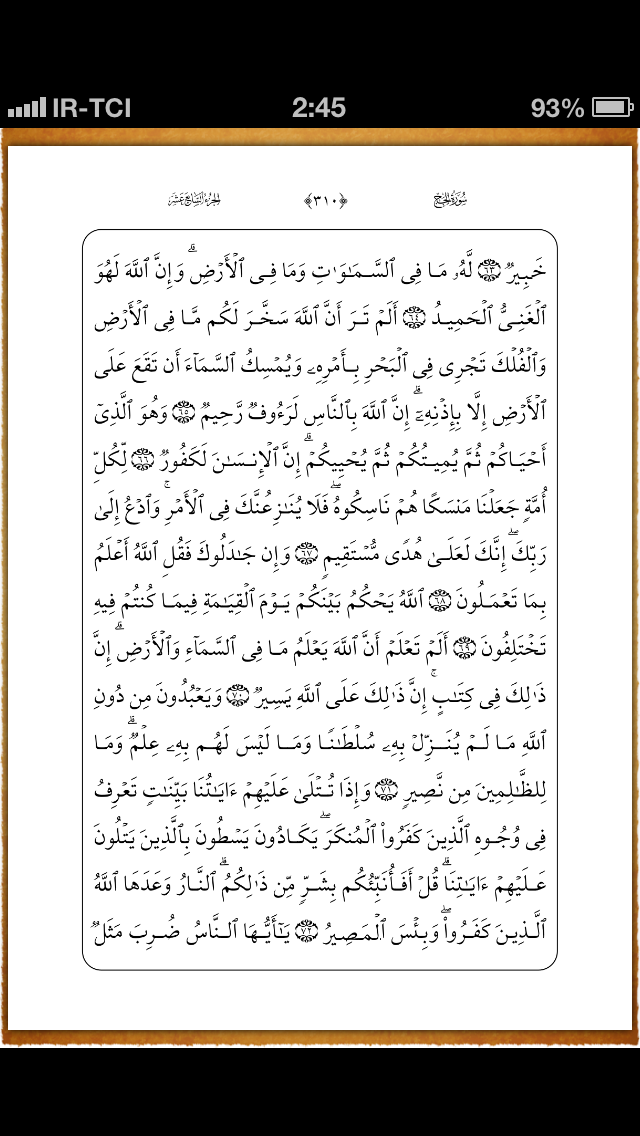 IR-TCI 2:45 93%
سُورَةُ الحَجِّ ﴿٣١٠﴾ الجُزءُ السَّابِعَ عَشَرَ
خَبِيرٌ ۝٦٣ لَّهُۥ مَا فِى ٱلسَّمَـٰوَٰتِ وَمَا فِى ٱلْأَرْضِ ۗ وَإِنَّ ٱللَّهَ لَهُوَ
ٱلْغَنِىُّ ٱلْحَمِيدُ ۝٦٤ أَلَمْ تَرَ أَنَّ ٱللَّهَ سَخَّرَ لَكُم مَّا فِى ٱلْأَرْضِ
وَٱلْفُلْكَ تَجْرِى فِى ٱلْبَحْرِ بِأَمْرِهِۦ وَيُمْسِكُ ٱلسَّمَآءَ أَن تَقَعَ عَلَى
ٱلْأَرْضِ إِلَّا بِإِذْنِهِۦٓ ۗ إِنَّ ٱللَّهَ بِٱلنَّاسِ لَرَءُوفٌ رَّحِيمٌ ۝٦٥ وَهُوَ ٱلَّذِىٓ
أَحْيَاكُمْ ثُمَّ يُمِيتُكُمْ ثُمَّ يُحْيِيكُمْ ۗ إِنَّ ٱلْإِنسَـٰنَ لَكَفُورٌ ۝٦٦ لِّكُلِّ
أُمَّةٍ جَعَلْنَا مَنسَكًا هُمْ نَاسِكُوهُ ۖ فَلَا يُنَـٰزِعُنَّكَ فِى ٱلْأَمْرِ ۚ وَٱدْعُ إِلَىٰ
رَبِّكَ ۖ إِنَّكَ لَعَلَىٰ هُدًى مُّسْتَقِيمٍ ۝٦٧ وَإِن جَـٰدَلُوكَ فَقُلِ ٱللَّهُ أَعْلَمُ
بِمَا تَعْمَلُونَ ۝٦٨ ٱللَّهُ يَحْكُمُ بَيْنَكُمْ يَوْمَ ٱلْقِيَـٰمَةِ فِيمَا كُنتُمْ فِيهِ
تَخْتَلِفُونَ ۝٦٩ أَلَمْ تَعْلَمْ أَنَّ ٱللَّهَ يَعْلَمُ مَا فِى ٱلسَّمَآءِ وَٱلْأَرْضِ ۗ إِنَّ
ذَٰلِكَ فِى كِتَـٰبٍ ۚ إِنَّ ذَٰلِكَ عَلَى ٱللَّهِ يَسِيرٌ ۝٧٠ وَيَعْبُدُونَ مِن دُونِ
ٱللَّهِ مَا لَمْ يُنَزِّلْ بِهِۦ سُلْطَـٰنًا وَمَا لَيْسَ لَهُم بِهِۦ عِلْمٌ ۗ وَمَا
لِلظَّـٰلِمِينَ مِن نَّصِيرٍ ۝٧١ وَإِذَا تُتْلَىٰ عَلَيْهِمْ ءَايَـٰتُنَا بَيِّنَـٰتٍ تَعْرِفُ
فِى وُجُوهِ ٱلَّذِينَ كَفَرُوا۟ ٱلْمُنكَرَ ۖ يَكَادُونَ يَسْطُونَ بِٱلَّذِينَ يَتْلُونَ
عَلَيْهِمْ ءَايَـٰتِنَا ۗ قُلْ أَفَأُنَبِّئُكُم بِشَرٍّ مِّن ذَٰلِكُمُ ۗ ٱلنَّارُ وَعَدَهَا ٱللَّهُ
ٱلَّذِينَ كَفَرُوا۟ ۖ وَبِئْسَ ٱلْمَصِيرُ ۝٧٢ يَـٰٓأَيُّهَا ٱلنَّاسُ ضُرِبَ مَثَلٌ